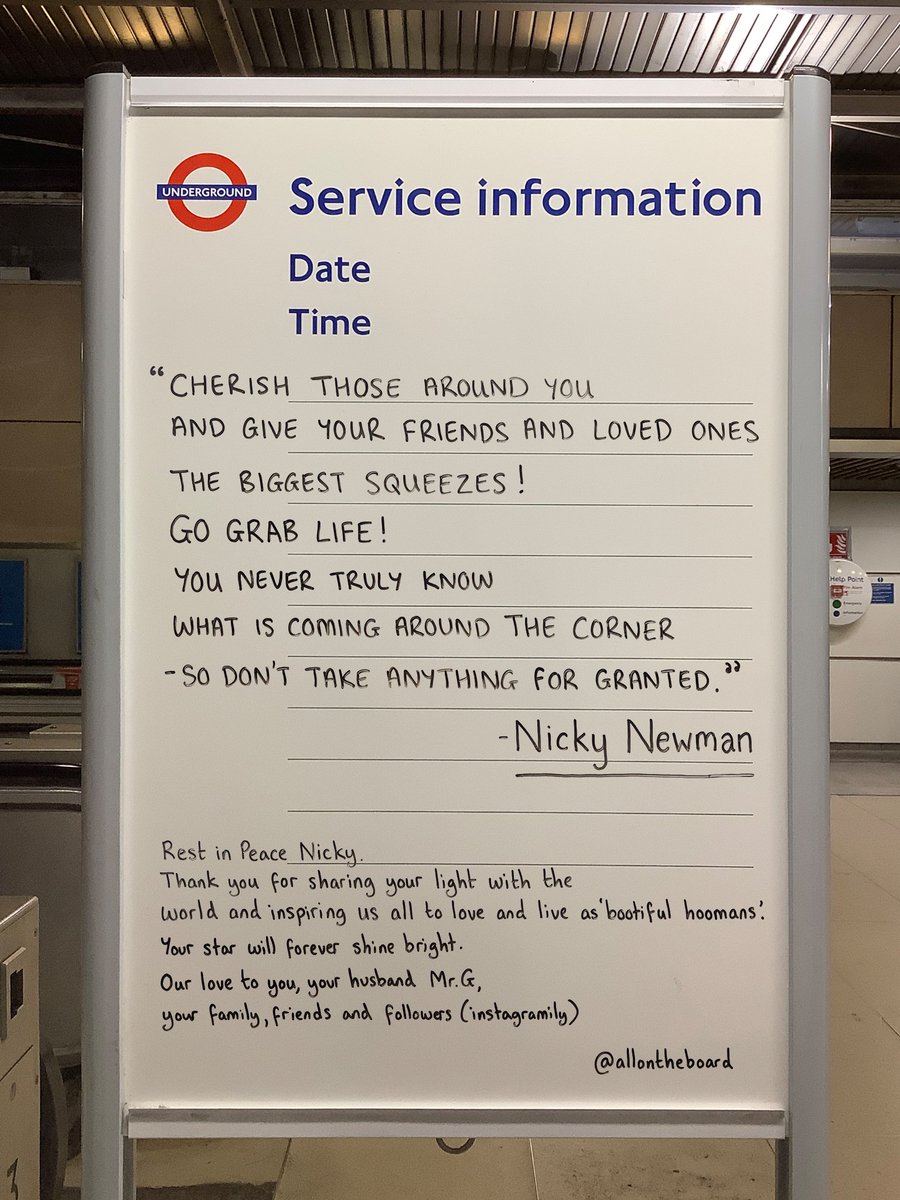 UNDERGROUND
Service information
Date
Time
“CHERISH THOSE AROUND YOU
AND GIVE YOUR FRIENDS AND LOVED ONES
THE BIGGEST SQUEEZES!
GO GRAB LIFE!
YOU NEVER TRULY KNOW
WHAT IS COMING AROUND THE CORNER
-SO DON'T TAKE ANYTHING FOR GRANTED.”
-Nicky Newman
Rest in Peace Nicky.
Thank you for sharing your light with the
world and inspiring us all to love and live as 'bootiful hoomans'.
Your star will forever shine bright.
Our love to you, your husband Mr.G,
your family, friends and followers (instagramily)
@allontheboard
Help Point
Fire Alarm
Emergency
Information
3